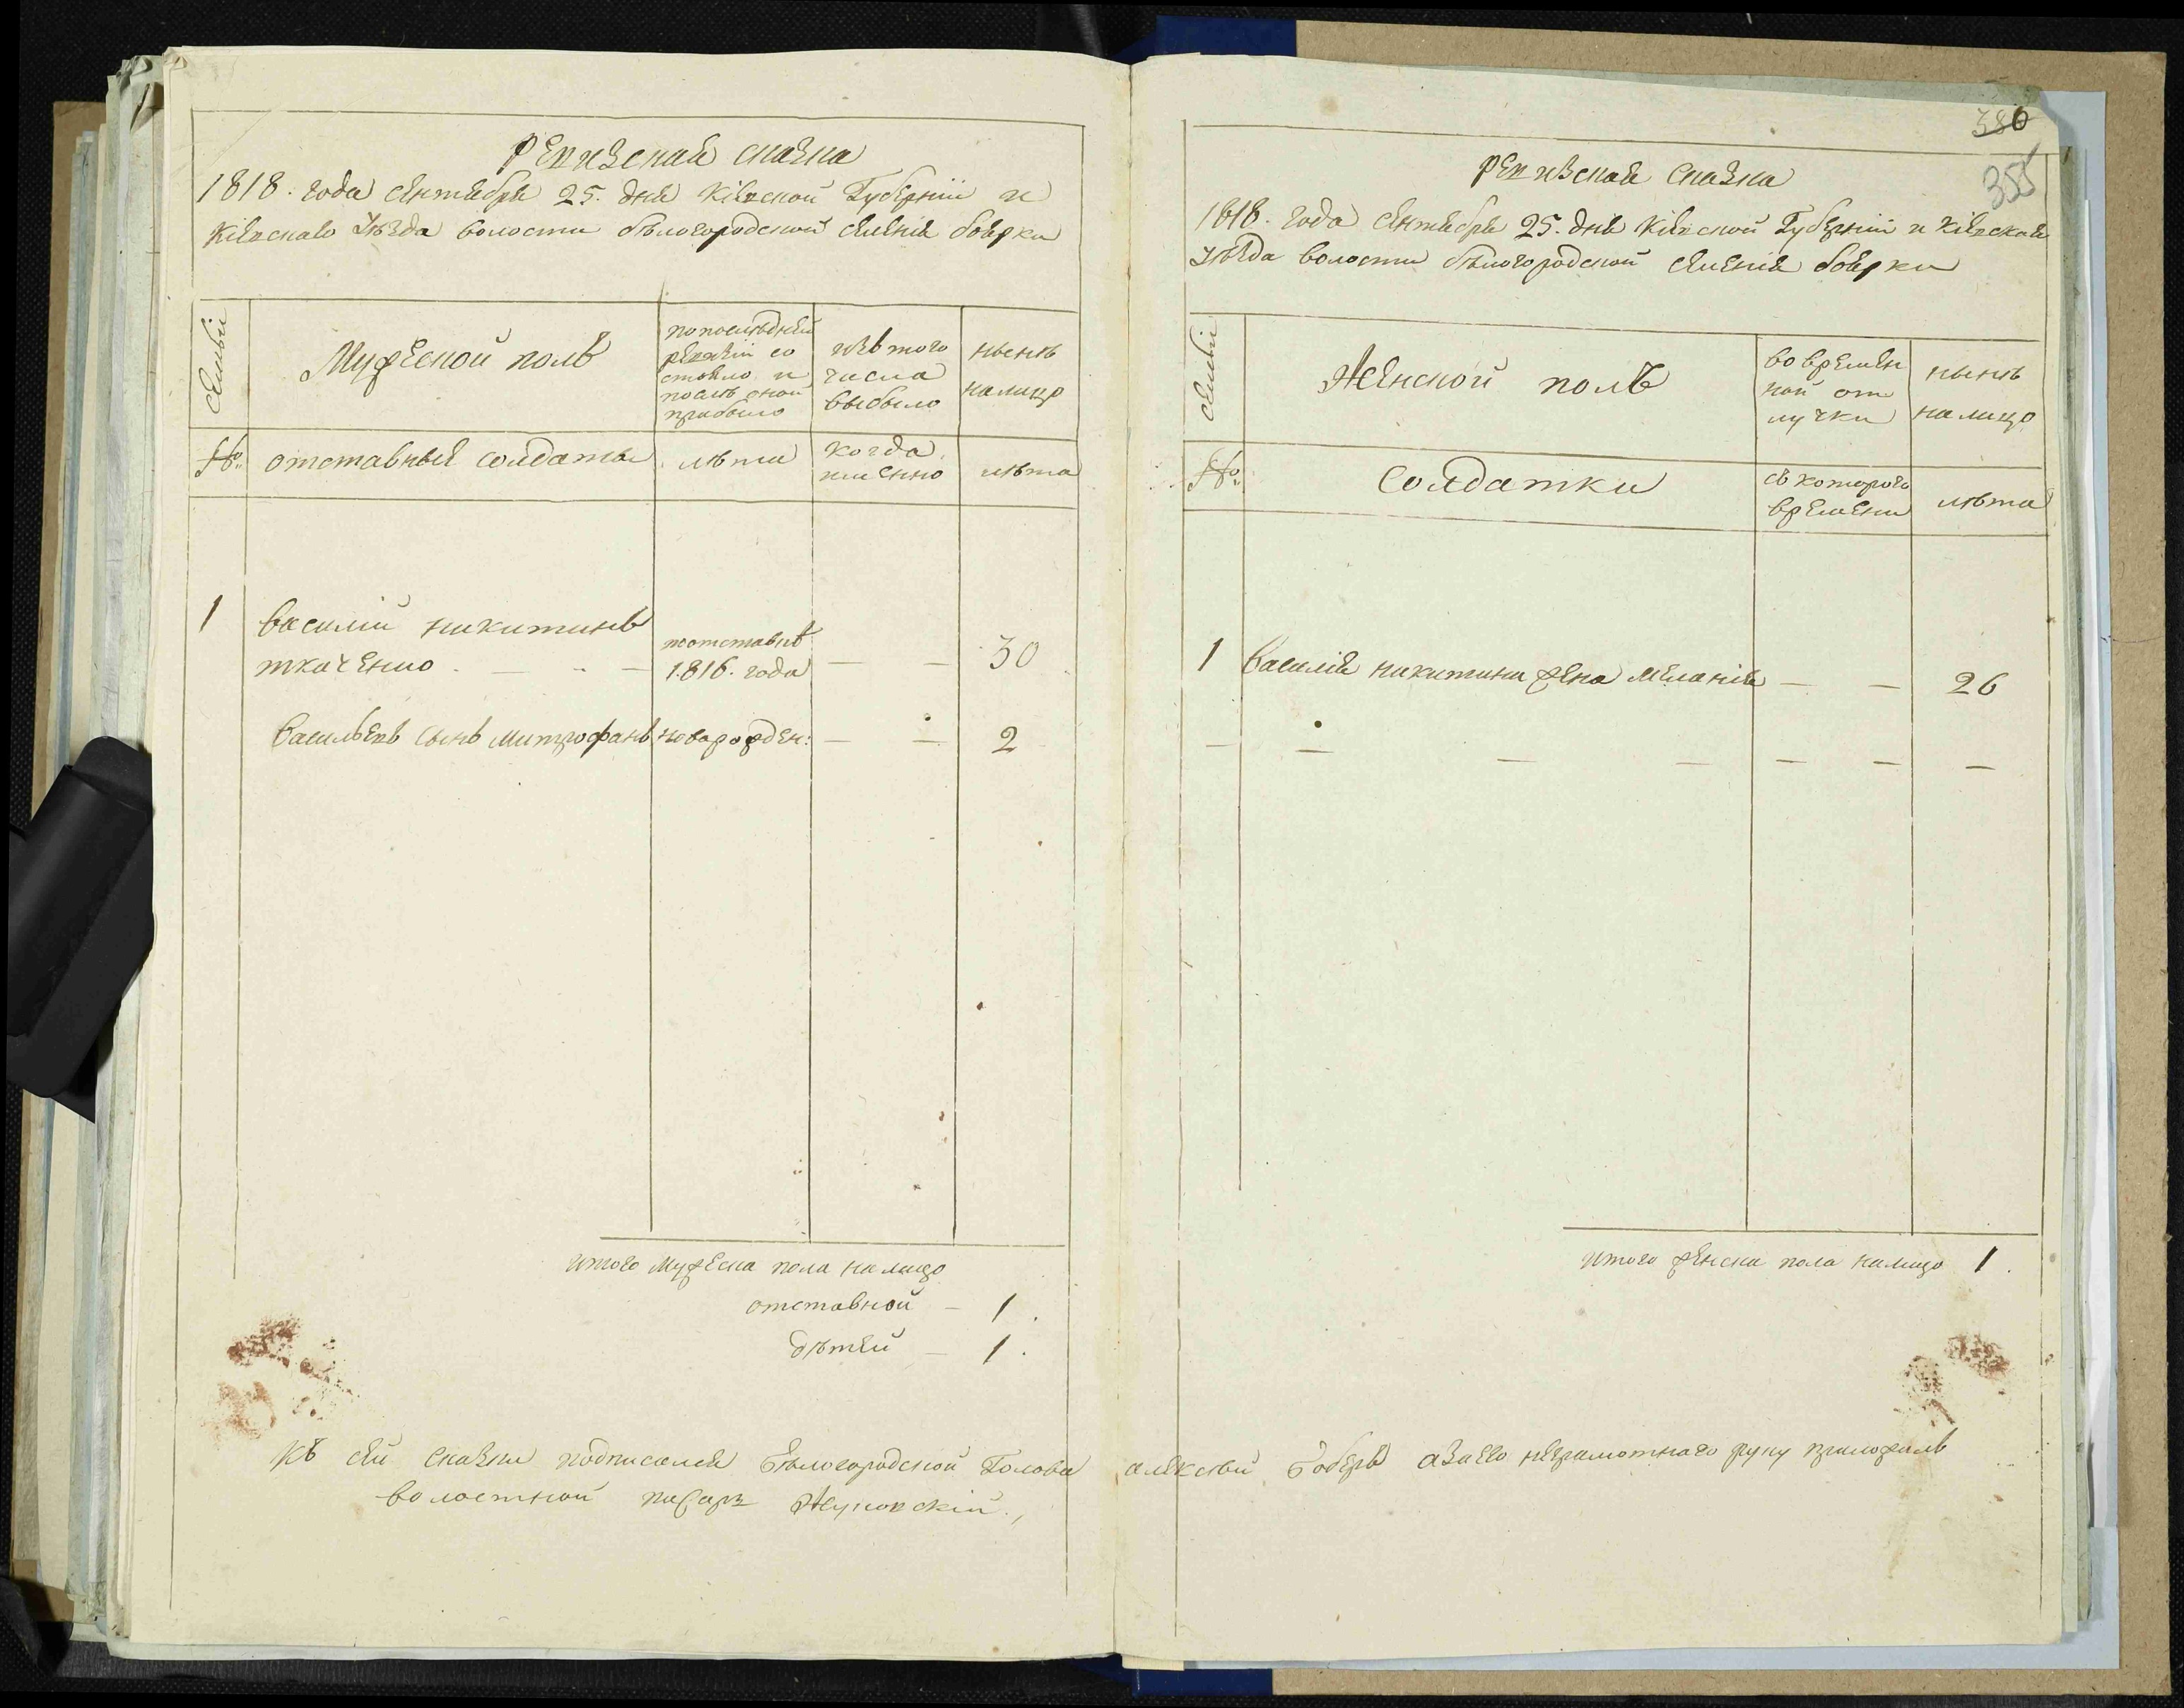 Ревизская сказка
1818. года сентября 25. дня Кіевской Губерніи и
Кіевскаго Уѣзда волости бѣлогородской селенія боярки
семьи
Мужеской полъ
по последней
ревизіи со
стояло и
после оной
прибыло
изъ того
числа
выбыло
ныне
налицо
№.
отставныя солдаты
лѣта
когда
имянно
лѣта
1
василій никитинъ
ткаченко
по отставкѣ
1816. года
30
васильевъ сынъ митрофанъ
новорожден:
2
итого мужеска пола налицо
отставной — 1.
дѣтей — 1.
380
355
Ревизская сказка
1818. года сентября 25. дня Кіевской Губерніи и Кіевскаго
Уѣзда волости бѣлогородской селенія боярки
семьи
Женской полъ
во времен
ной от
лучки
нынѣ
налицо
№.
солдатки
съ котораго
времени
лѣта
1
василія никитина жена меланія
26
итого женска пола налицо 1.
Къ сей сказки подписался бѣлогородской Голова алексѣй бобырь а за его неграмотнаго руку приложилъ
волостной писарь Жуковскій.